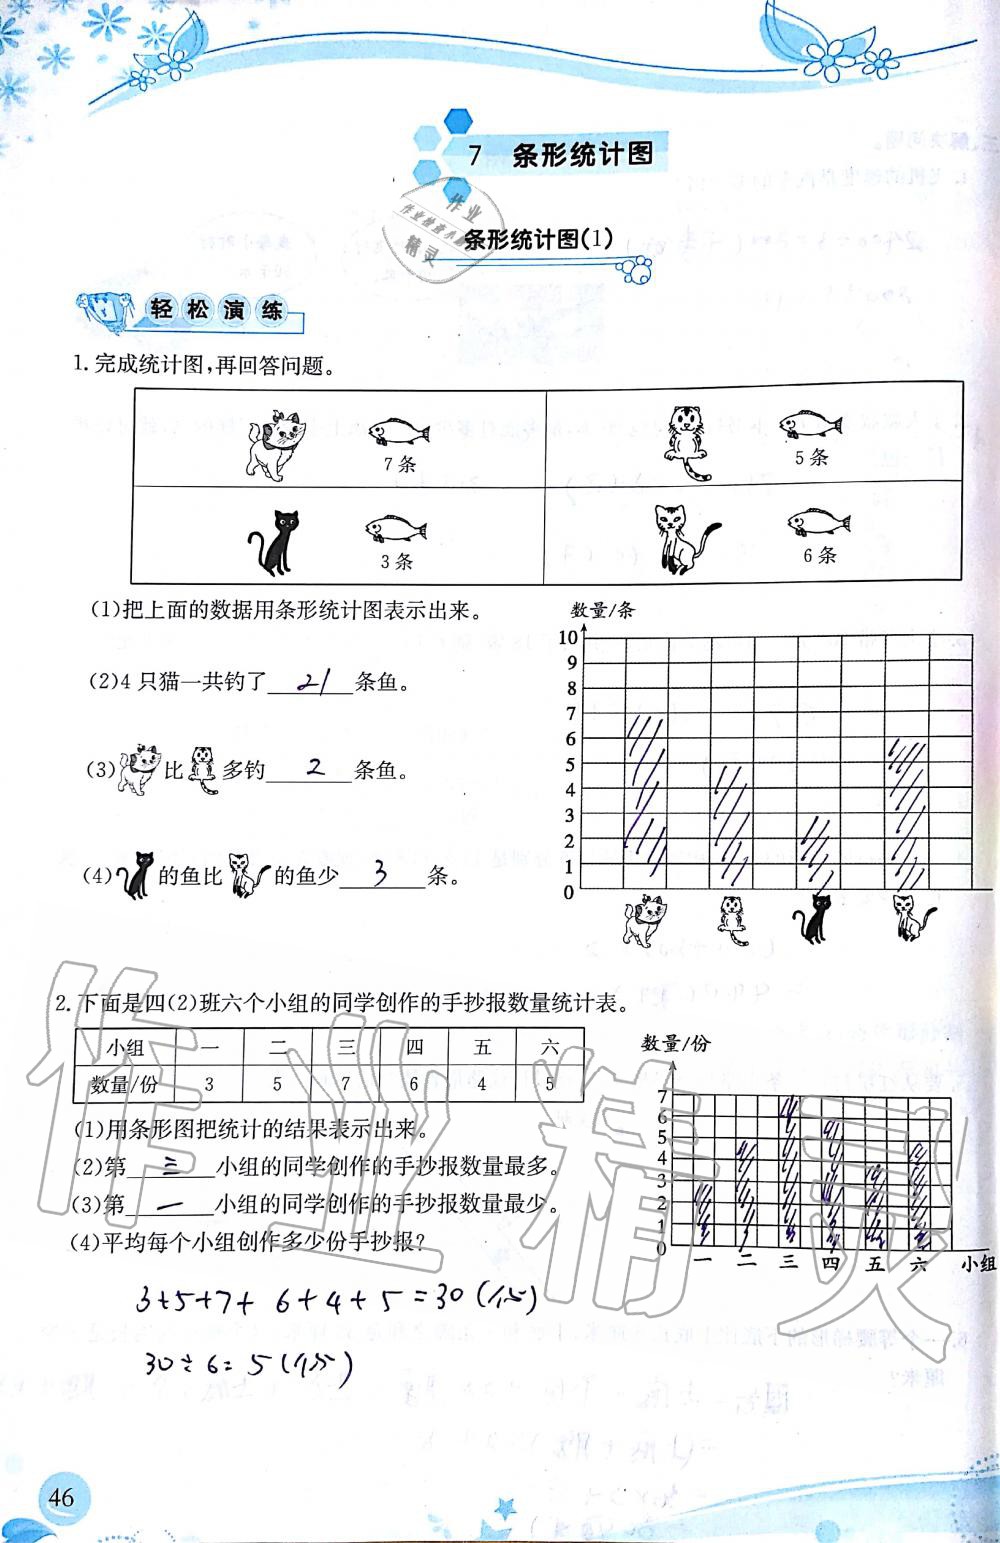 7 条形统计图
条形统计图(1)
轻松演练
1.完成统计图,再回答问题。
7条
5条
3条
6条
(1)把上面的数据用条形统计图表示出来。
数量/条
10
9
8
7
6
5
4
3
2
1
0
(2)4只猫一共钓了 21 条鱼。
(3) 比 多钓 2 条鱼。
(4) 的鱼比 的鱼少 3 条。
2.下面是四(2)班六个小组的同学创作的手抄报数量统计表。
小组 一 二 三 四 五 六
数量/份 3 5 7 6 4 5
(1)用条形图把统计的结果表示出来。
(2)第 三 小组的同学创作的手抄报数量最多。
(3)第 一 小组的同学创作的手抄报数量最少。
(4)平均每个小组创作多少份手抄报?
数量/份
7
6
5
4
3
2
1
0
一 二 三 四 五 六 小组
3+5+7+6+4+5=30(份)
30÷6=5(份)
46
作业精灵
作业
精灵